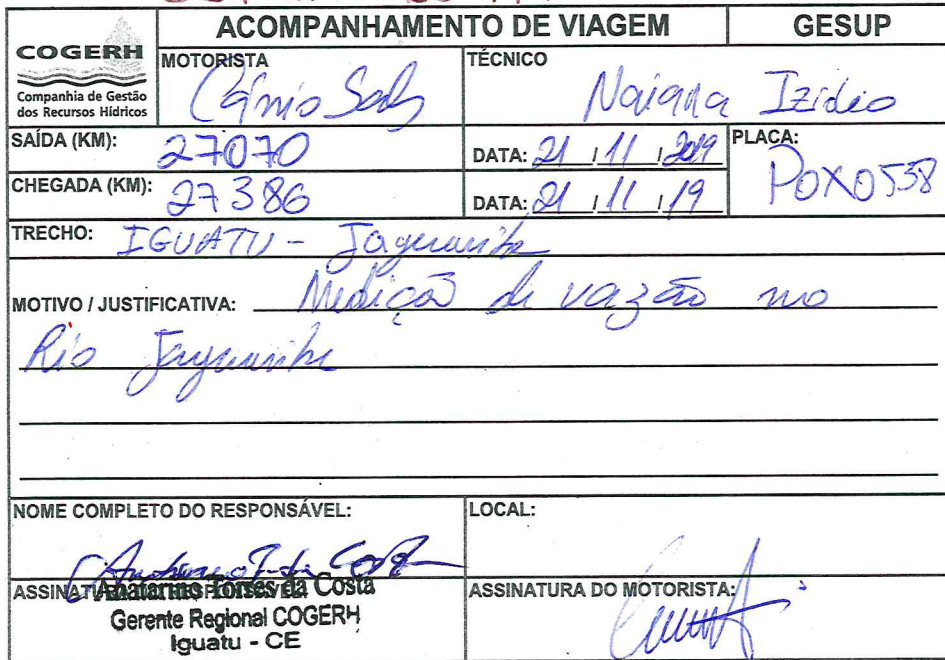 ACOMPANHAMENTO DE VIAGEM GESUP
COGERH
Companhia de Gestão
dos Recursos Hídricos
MOTORISTA
TÉCNICO Naiana Izidio
SAÍDA (KM): 27070 DATA: 21/11/2019 PLACA: POX0538
CHEGADA (KM): 27386 DATA: 21/11/19
TRECHO: IGUATU - Jaguaribe
MOTIVO / JUSTIFICATIVA: Medição de vazão no
Rio Jaguaribe
NOME COMPLETO DO RESPONSÁVEL: LOCAL:
Abatarino Torres da Costa
Gerente Regional COGERH
Iguatu - CE
ASSINATURA DO MOTORISTA: